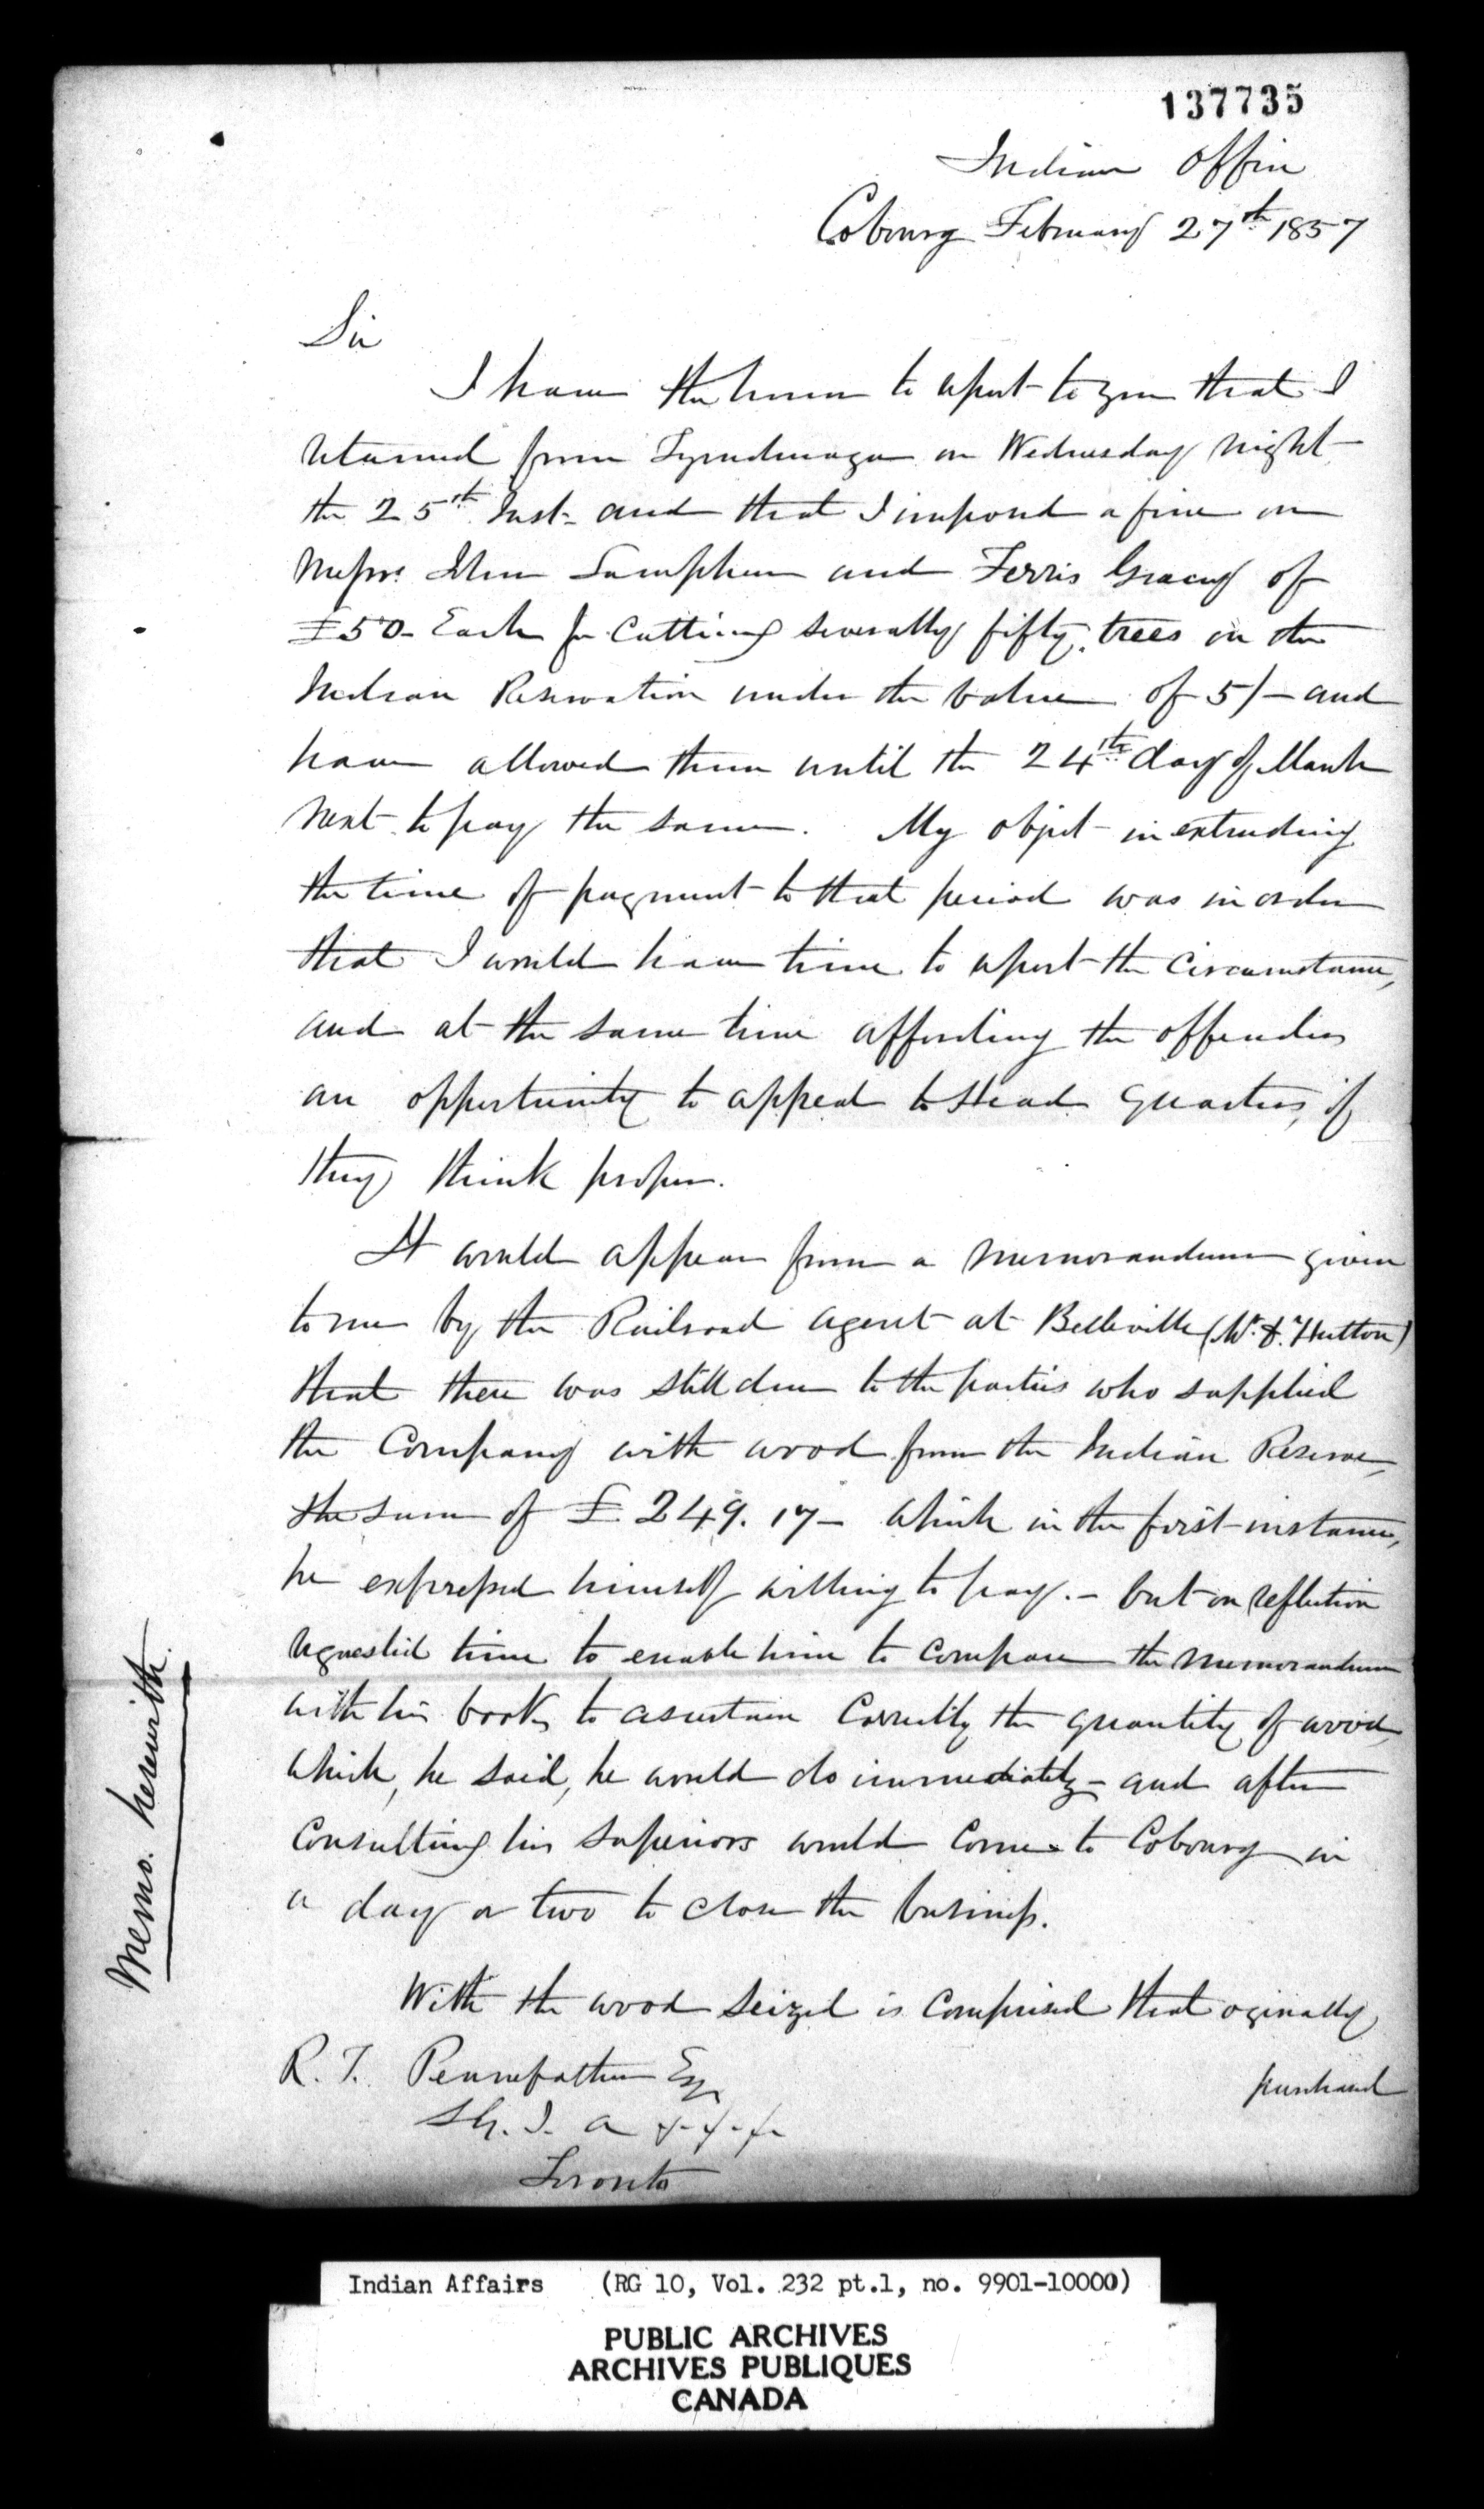 137735
Indian Office
Cobourg February 27th 1857
Sir
I have the honor to report to you that I
returned from Tyendinaga on Wednesday night
the 25th Inst- and that I imposed a fine on
Messrs. John Lampham and Ferris Gracey of
£50- Each for Cutting severally fifty trees on the
Indian Reservation under the value of 5/- and
have allowed them until the 24th day of March
next to pay the same. My object in extending
the time of payment to that period was in order
that I would have time to report the Circumstance,
and at the same time affording the offenders
an opportunity to appeal to Head Quarters, if
they think proper.
It would appear from a memorandum given
to me by the Railroad agent at Belleville (Mr. Hutton)
that there was still due to the parties who supplied
the Company with wood from the Indian Reserve,
the sum of £249.17- which in the first instance,
he expressed himself willing to pay. - but on reflection
requested time to enable him to compare the memorandum
with his books to ascertain Correctly the quantity of wood,
which, he said, he would do immediately - and after
Consulting his superiors would Come to Cobourg in
a day or two to close the business.
With the wood seized is Comprised that oginally
purchased
R. T. Pennefather Esq
S.G. I. A &-&-&-
Toronto
Memo. herewith.
Indian Affairs (RG 10, Vol. 232 pt.1, no. 9901-10000)
PUBLIC ARCHIVES
ARCHIVES PUBLIQUES
CANADA